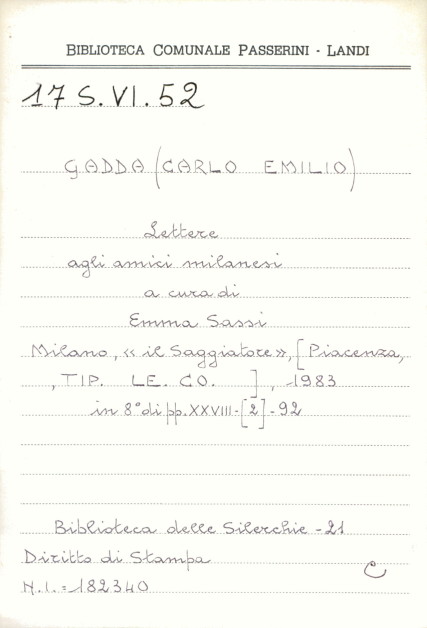 BIBLIOTECA COMUNALE PASSERINI - LANDI
17 S. VI. 52
GADDA (CARLO EMILIO)
Lettere
agli amici milanesi
a cura di
Emma Sassi
Milano, « il Saggiatore », [Piacenza,
, TIP. LE. CO. ], 1983
in 8° di pp. XXVIII-[2]-92
Biblioteca delle Silerchie - 21
Diritto di Stampa
C
N.I. = 182340